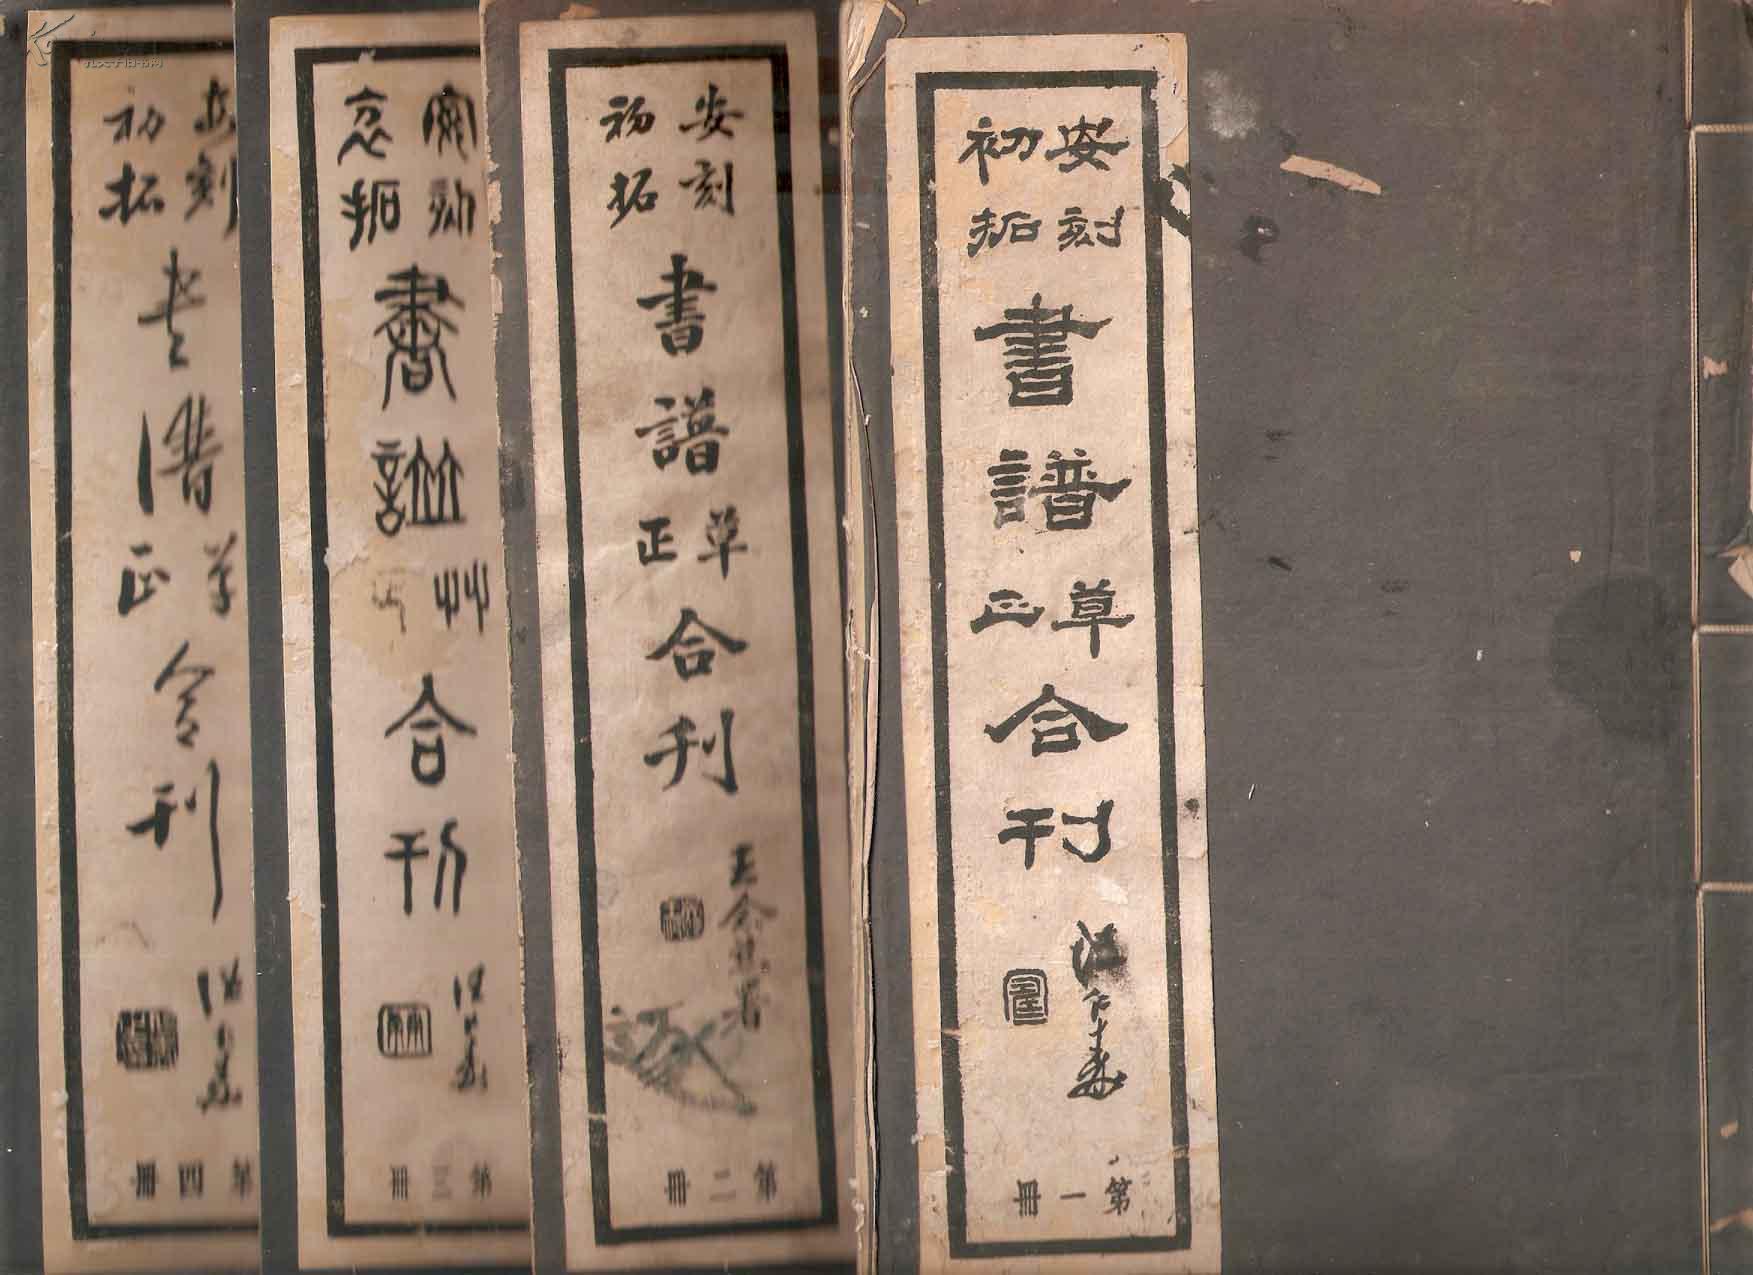 安刻
初拓
書譜
草
正
合刊
第一冊
安刻
初拓
書譜
草
正
合刊
第二冊
安刻
初拓
書譜
艸
合刊
第三冊
安刻
初拓
书譜
草
正
合刊
第四冊
孔夫子旧书网